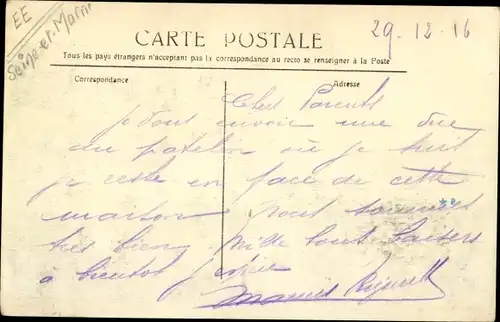 EE
Seine-et-Marne
29.12.16
CARTE POSTALE
Tous les pays étrangers n'acceptant pas la correspondance au recto se renseigner à la Poste
Correspondance
Adresse
Cher Parents
je vous envoie une vue
du patelin où je suis
je reste en face de cette
maison nous sommes
très bien Mille bons baisers
à bientôt j'espère